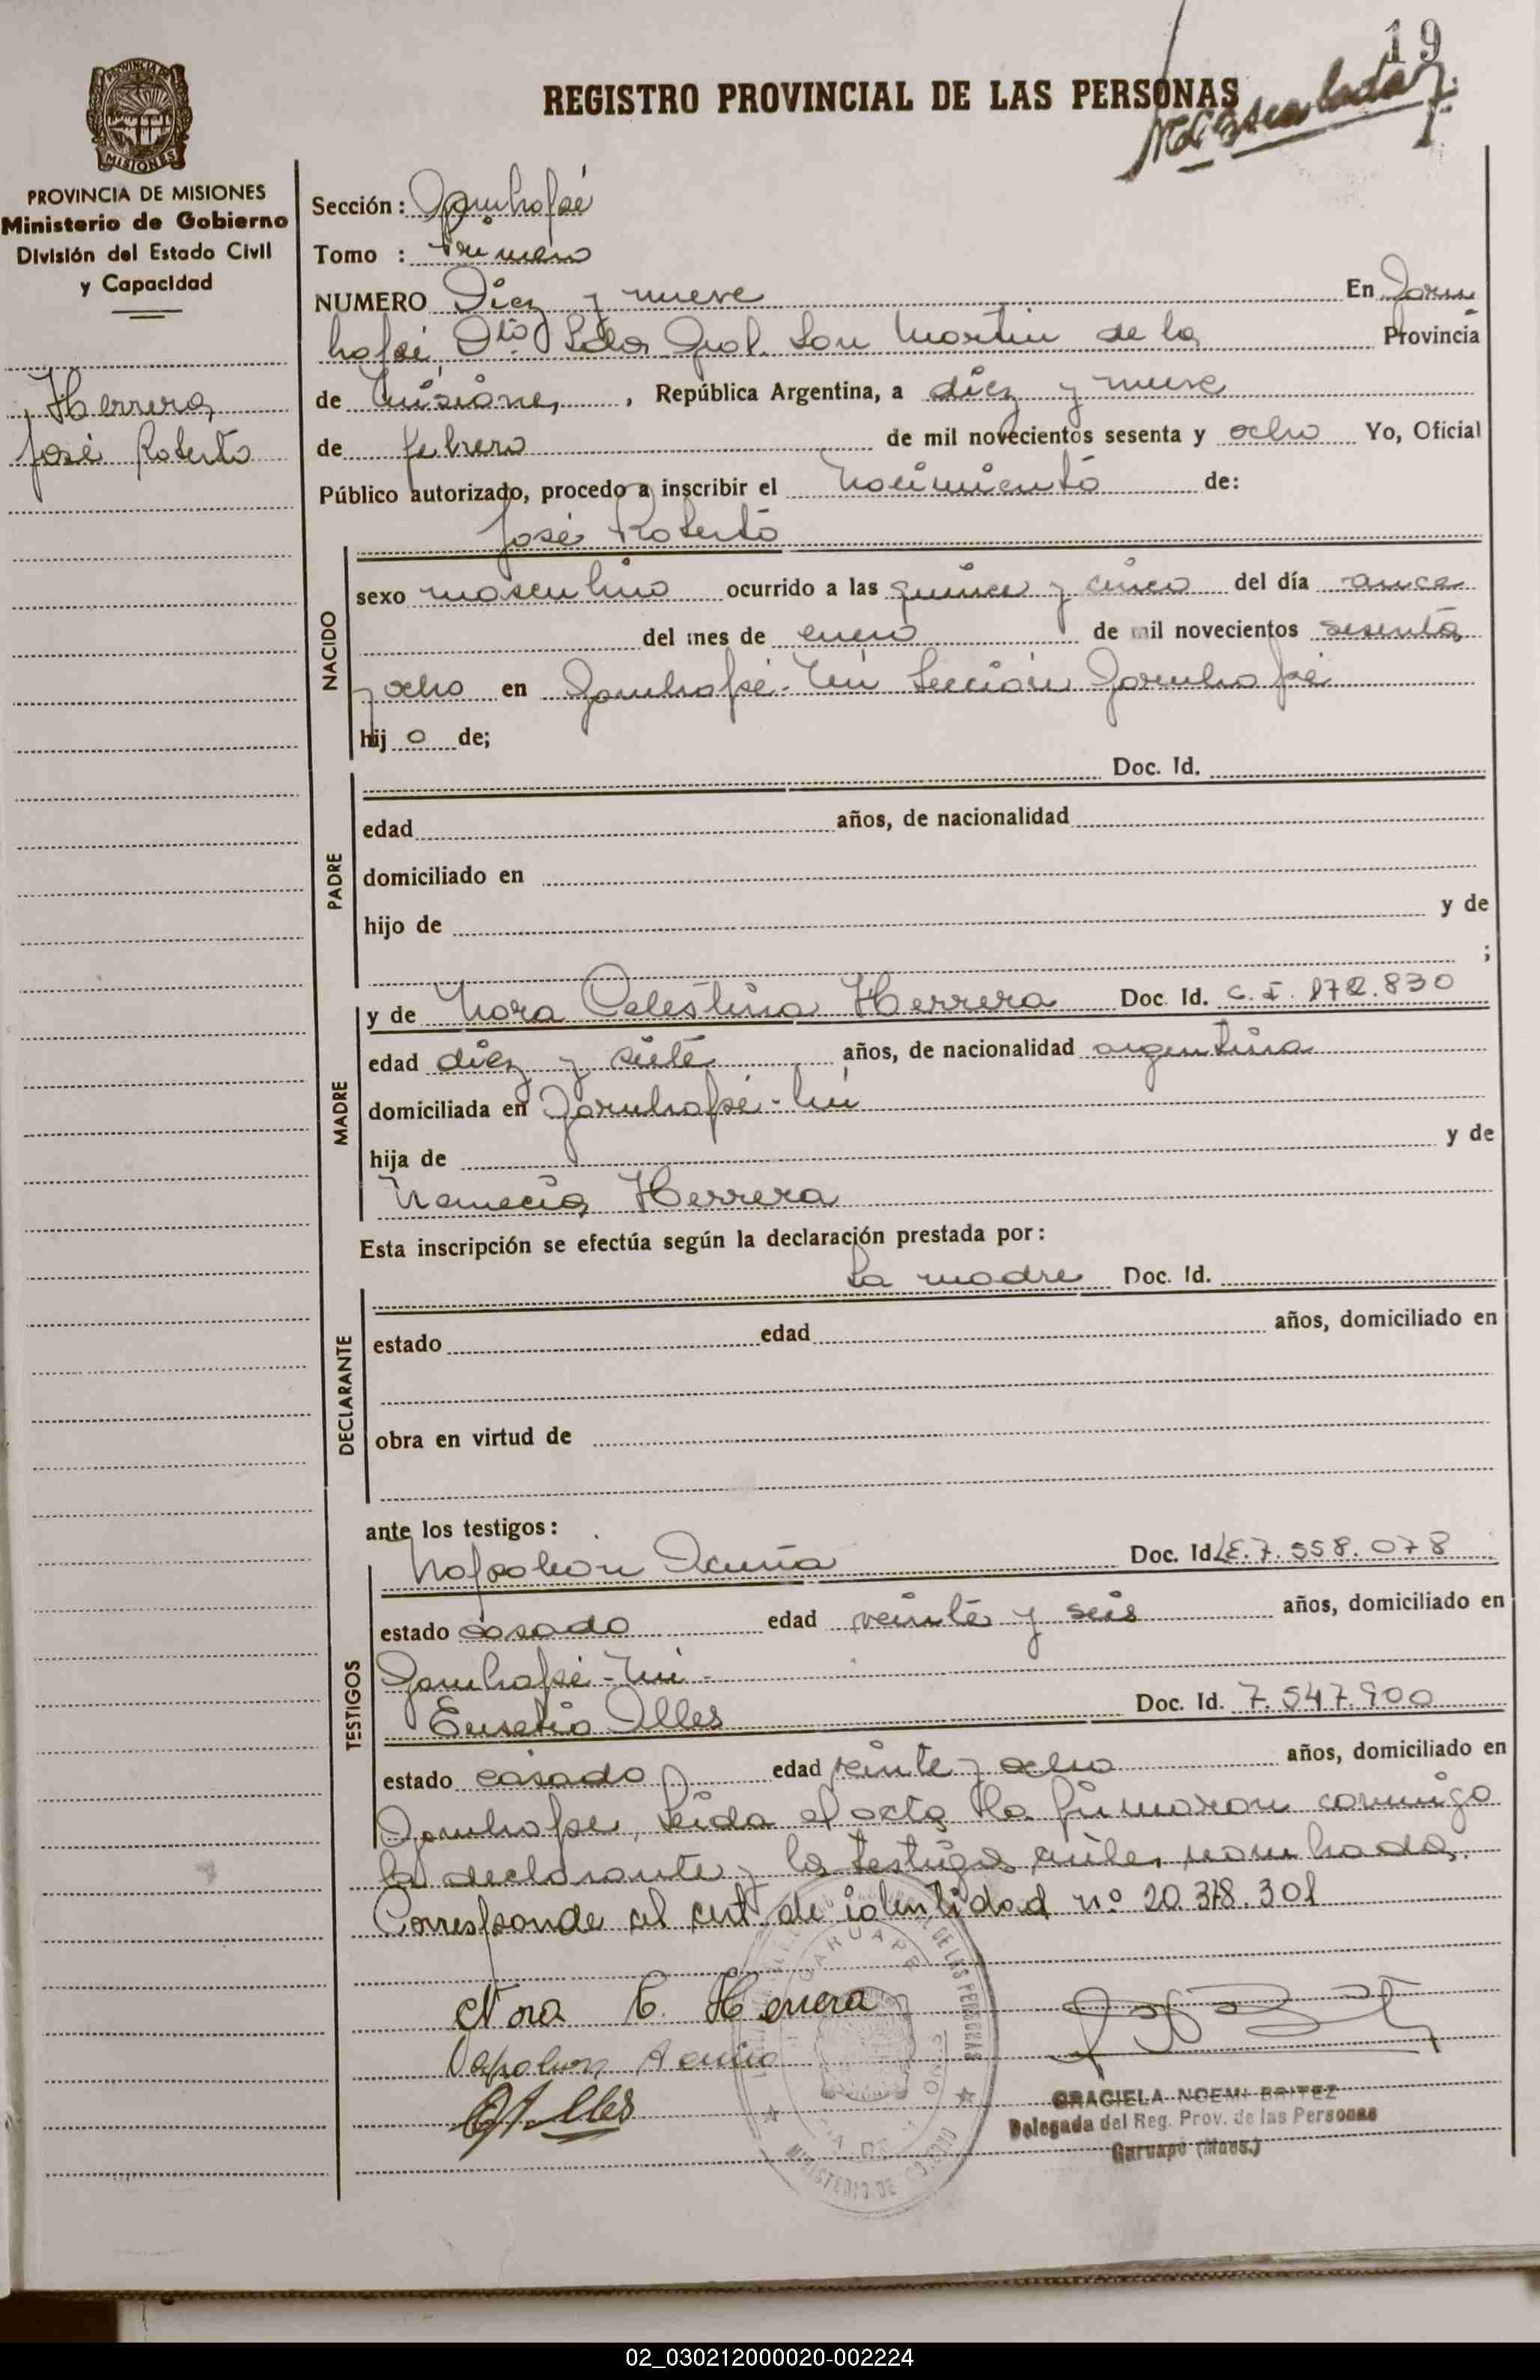 19
REGISTRO PROVINCIAL DE LAS PERSONAS
PROVINCIA DE
MISIONES
PROVINCIA DE MISIONES
Ministerio de Gobierno
División del Estado Civil
y Capacidad
Herrera
José Roberto
Sección:
Tomo : Primero
NUMERO Diez y nueve En
Dto. Ldor. Gral. San Martin de la Provincia
de Misiones, República Argentina, a diez y nueve
de febrero de mil novecientos sesenta y ocho Yo, Oficial
Público autorizado, procedo a inscribir el Nacimiento de:
José Roberto
NACIDO
sexo masculino ocurrido a las quince y cinco del día once
del mes de enero de mil novecientos sesenta
y ocho en Sección
hij o de;
PADRE
Doc. Id.
edad años, de nacionalidad
domiciliado en
hijo de y de
;
MADRE
y de Nora Celestina Herrera Doc. Id. C.I. 172.830
edad diez y siete años, de nacionalidad argentina
domiciliada en
hija de y de
Nemecia Herrera
Esta inscripción se efectúa según la declaración prestada por:
DECLARANTE
La madre Doc. Id.
estado edad años, domiciliado en
obra en virtud de
ante los testigos:
TESTIGOS
Napoleón Acuña Doc. Id. L.E. 7.558.078
estado casado edad veinte y seis años, domiciliado en
Eusebio Alles Doc. Id. 7.547.900
estado casado edad veinte y ocho años, domiciliado en
Leida el acta la firmaron conmigo
la declarante y los testigos antes nombrados.
Corresponde al cert de identidad nº 20.378.301
Nora C. Herrera
Napoleon Acuña
GARUAPE
DE LAS PERSONAS
MINISTERIO DE
GRACIELA NOEMI BRITEZ
Delegada del Reg. Prov. de las Personas
Garuapé (Mnes.)
02_030212000020-002224